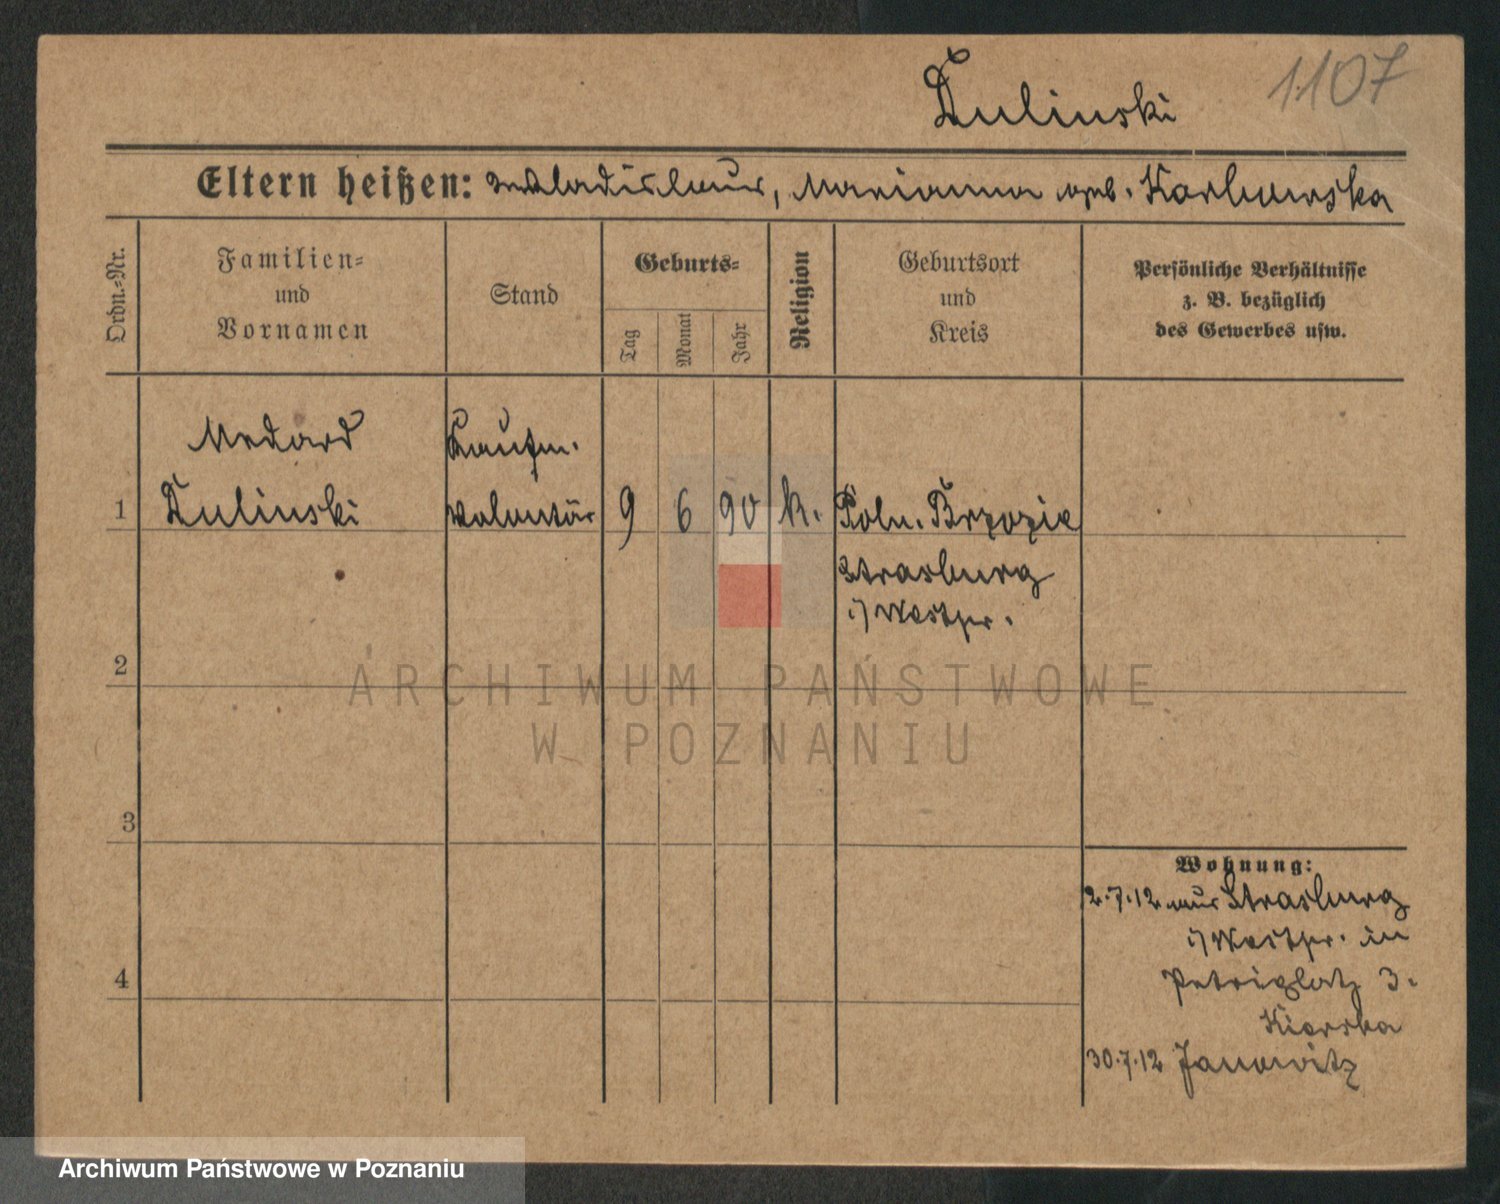 Zulinski
1107
Eltern heißen: Wladislaus, Marianna geb. Karbowska
Ordn.-Nr.
Familien-
und
Vornamen
Stand
Geburts-
Tag
Monat
Jahr
Religion
Geburtsort
und
Kreis
Persönliche Verhältnisse
z. B. bezüglich
des Gewerbes usw.
Medard
Kaufm.
1
Zulinski
Volontär
9
6
90
k.
Poln. Brzozie
Strasburg
i/Westpr.
2
ARCHIWUM PAŃSTWOWE
W POZNANIU
3
Wohnung:
2.7.12 aus Strasburg
i/Westpr. in
Petriplatz 3.
4
30.7.12 Janowitz
Archiwum Państwowe w Poznaniu